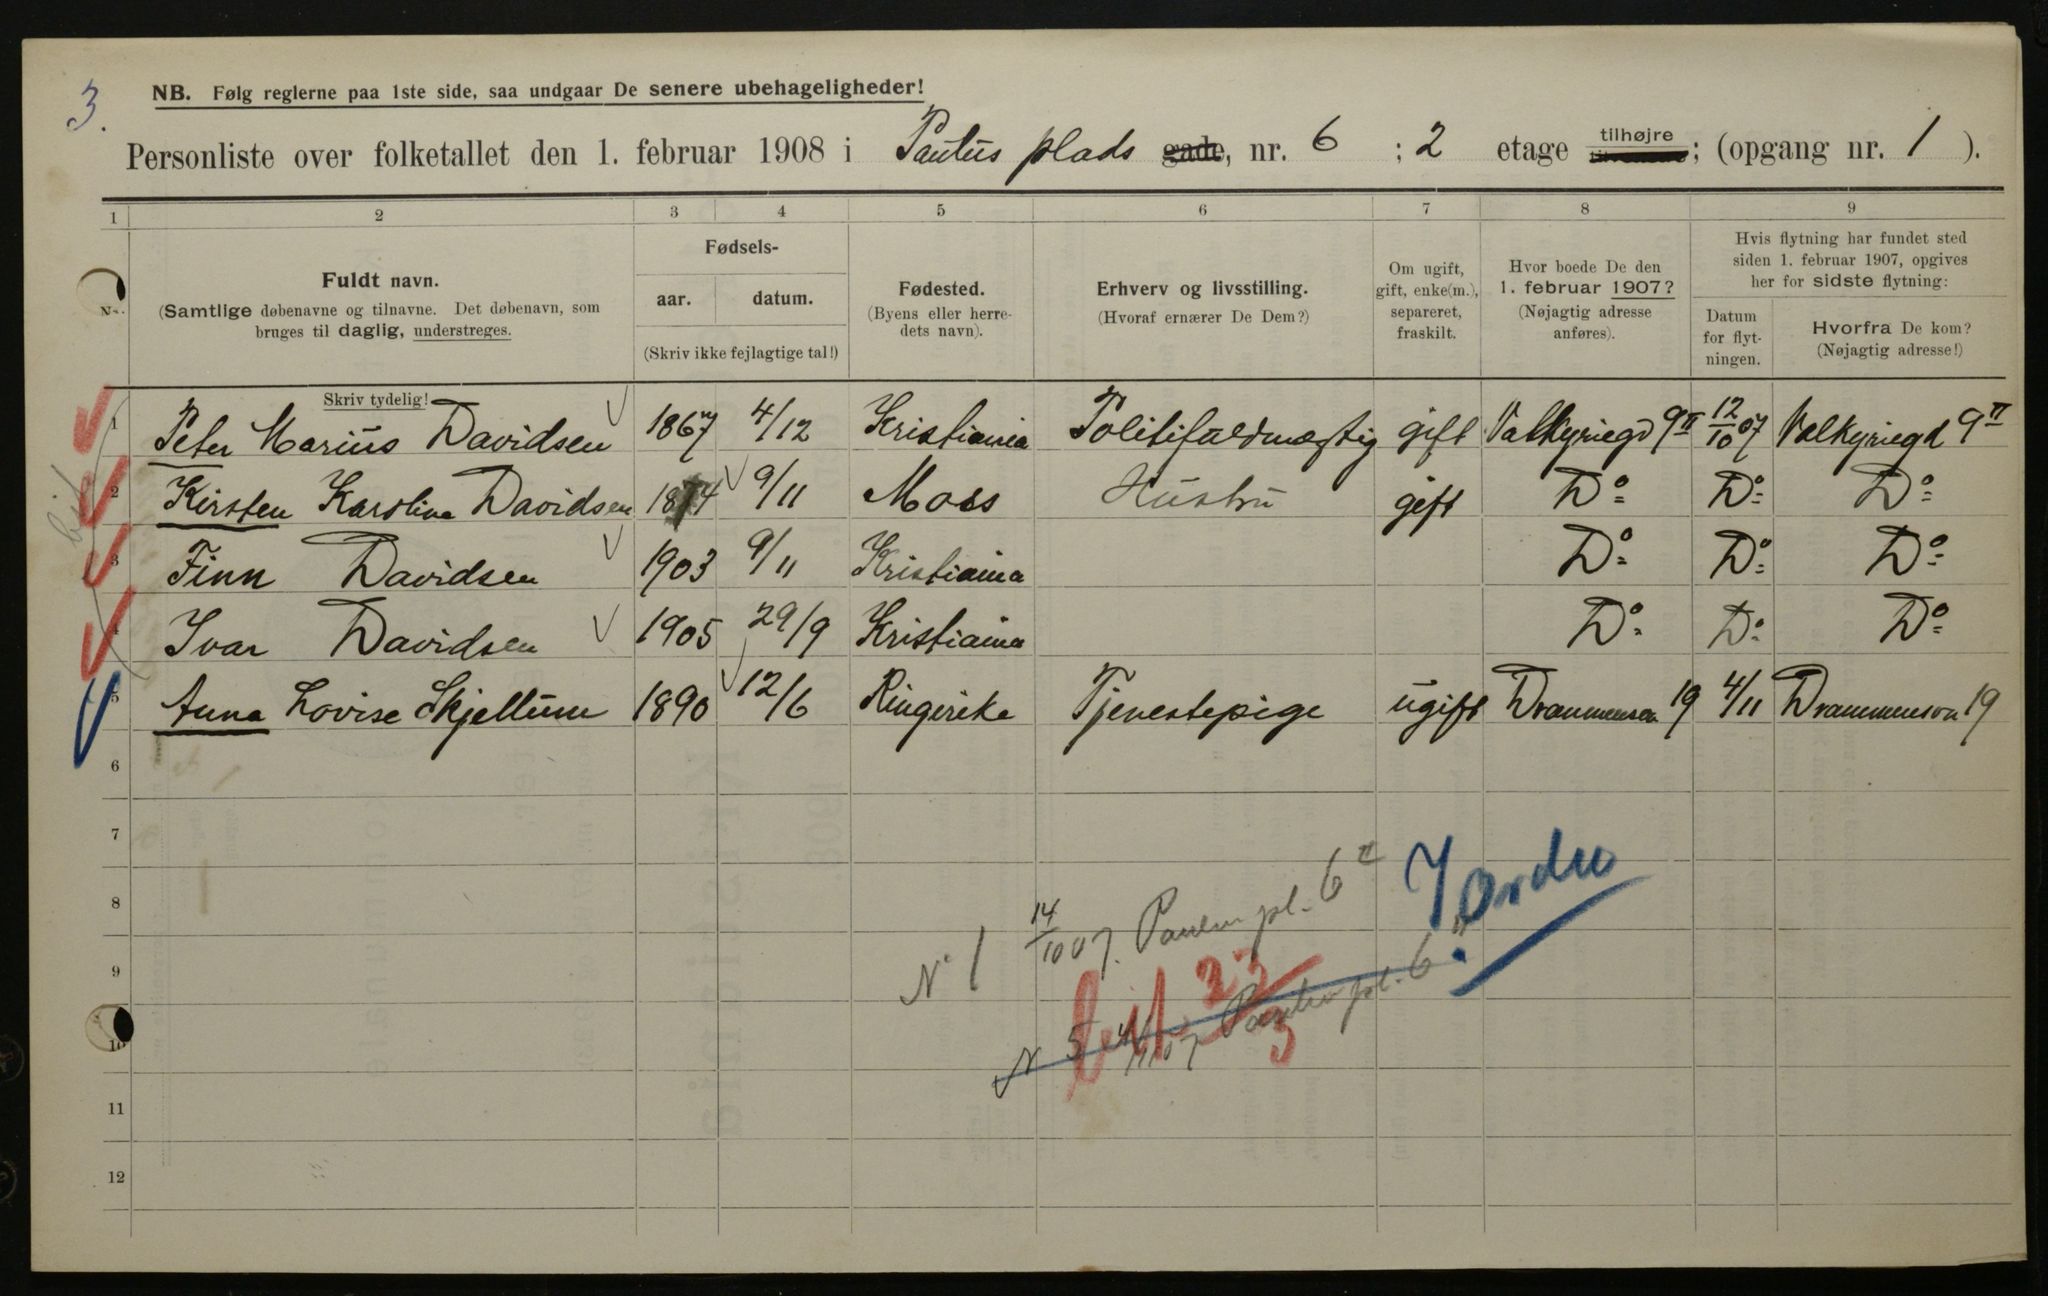 3.
NB. Følg reglerne paa 1ste side, saa undgaar De senere ubehageligheder!
Personliste over folketallet den 1. februar 1908 i Paulus plads gade, nr. 6 ; 2 etage tilhøjre ; (opgang nr. 1 ).
1 2 3 4 5 6 7 8 9
No. Fuldt navn. (Samtlige døbenavne og tilnavne. Det døbenavn, som bruges til daglig, understreges. Fødsels- aar. datum. (Skriv ikke fejlagtige tal!) Fødested. (Byens eller herredets navn). Erhverv og livsstilling. (Hvoraf ernærer De Dem?) Om ugift, gift, enke(m.), separeret, fraskilt. Hvor boede De den 1. februar 1907? (Nøjagtig adresse anføres). Hvis flytning har fundet sted siden 1. februar 1907, opgives her for sidste flytning: Datum for flytningen. Hvorfra De kom? (Nøjagtig adresse!)
Skriv tydelig!
1 Peter Marius Davidsen 1867 4/12 Kristiania Politifuldmægtig gift Valkyriegd 9 II 12/10 07 Valkyriegd 9 II
2 Kirsten Karoline Davidsen 1874 9/11 Moss Hustru gift Do Do Do
3 Finn Davidsen 1903 9/11 Kristiania Do Do Do
4 Ivar Davidsen 1905 29/9 Kristiania Do Do Do
5 Anna Lovise Skjellum 1890 12/6 Ringerike Tjenestepige ugift Drammensvn 19 4/11 Drammensvn 19
6
7
8
9
10
11
12
No 1 14/10 07. Paulus pl. 6 II
N 5 4/11 07 Paulus pl. 6 II
23/3